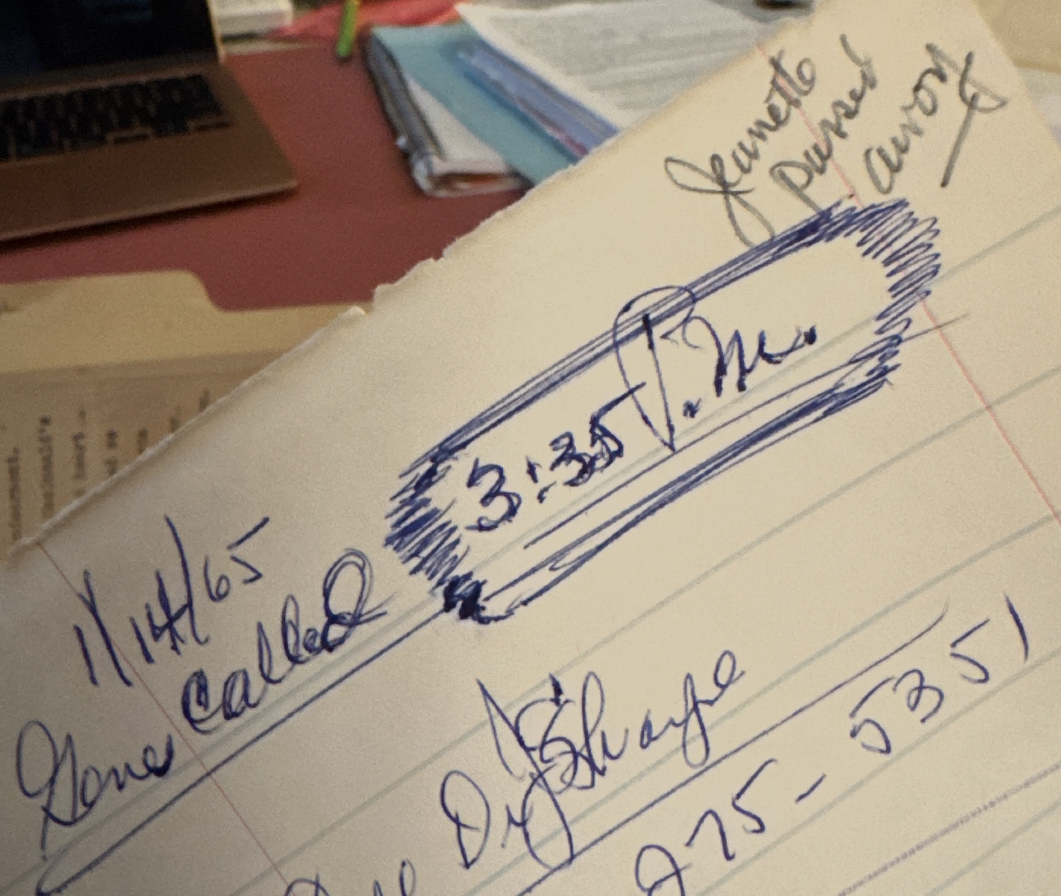 Jeanette
passed
away
3:35 P.M.
1/14/65
Gene Called
Dr. Sharpe
275-5351